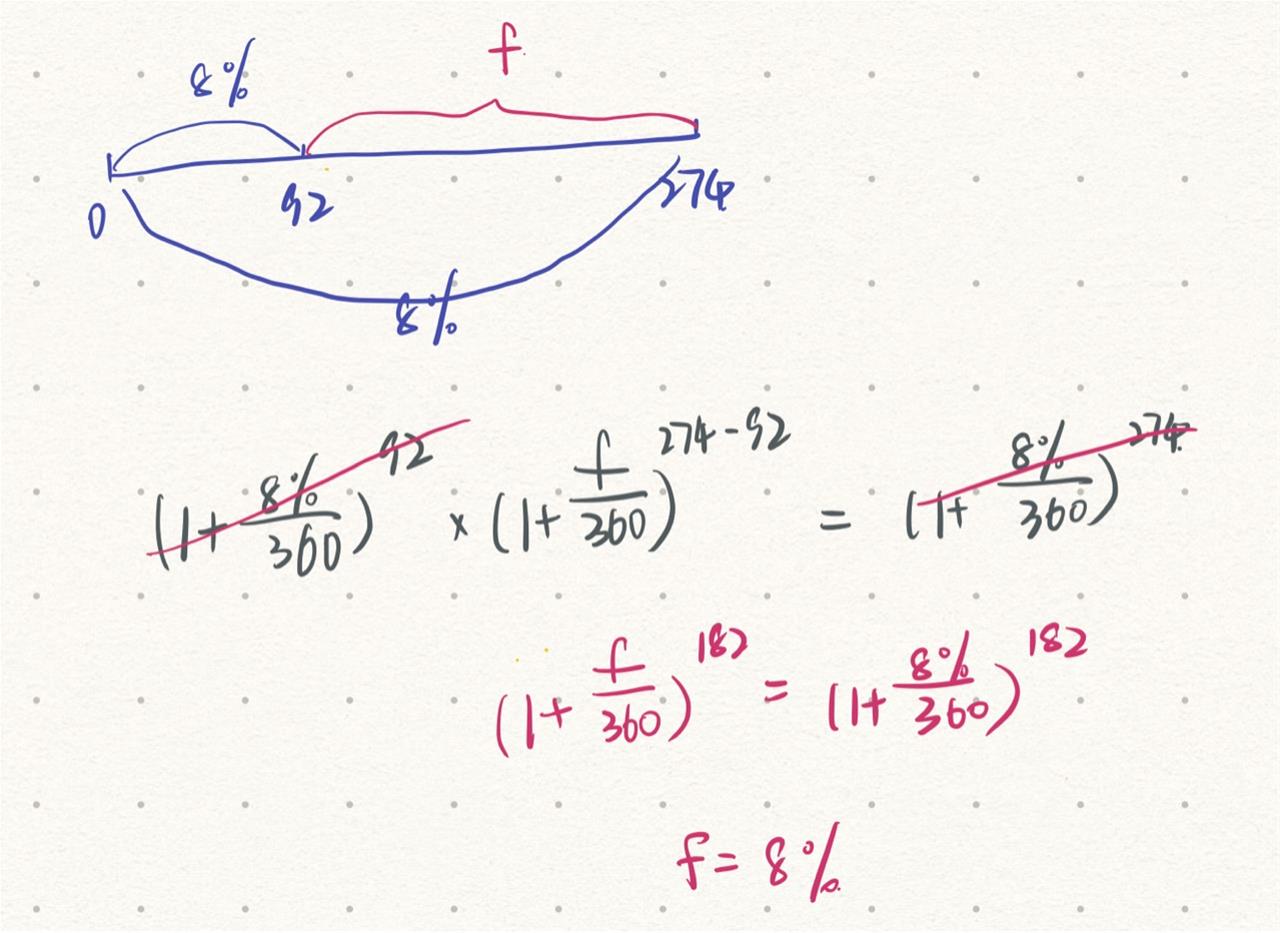 f
8%
0 92 274
8%
(1+ 8%/360)^92 × (1+ f/360)^274-92 = (1+ 8%/360)^274
(1+ f/360)^182 = (1+ 8%/360)^182
f = 8%